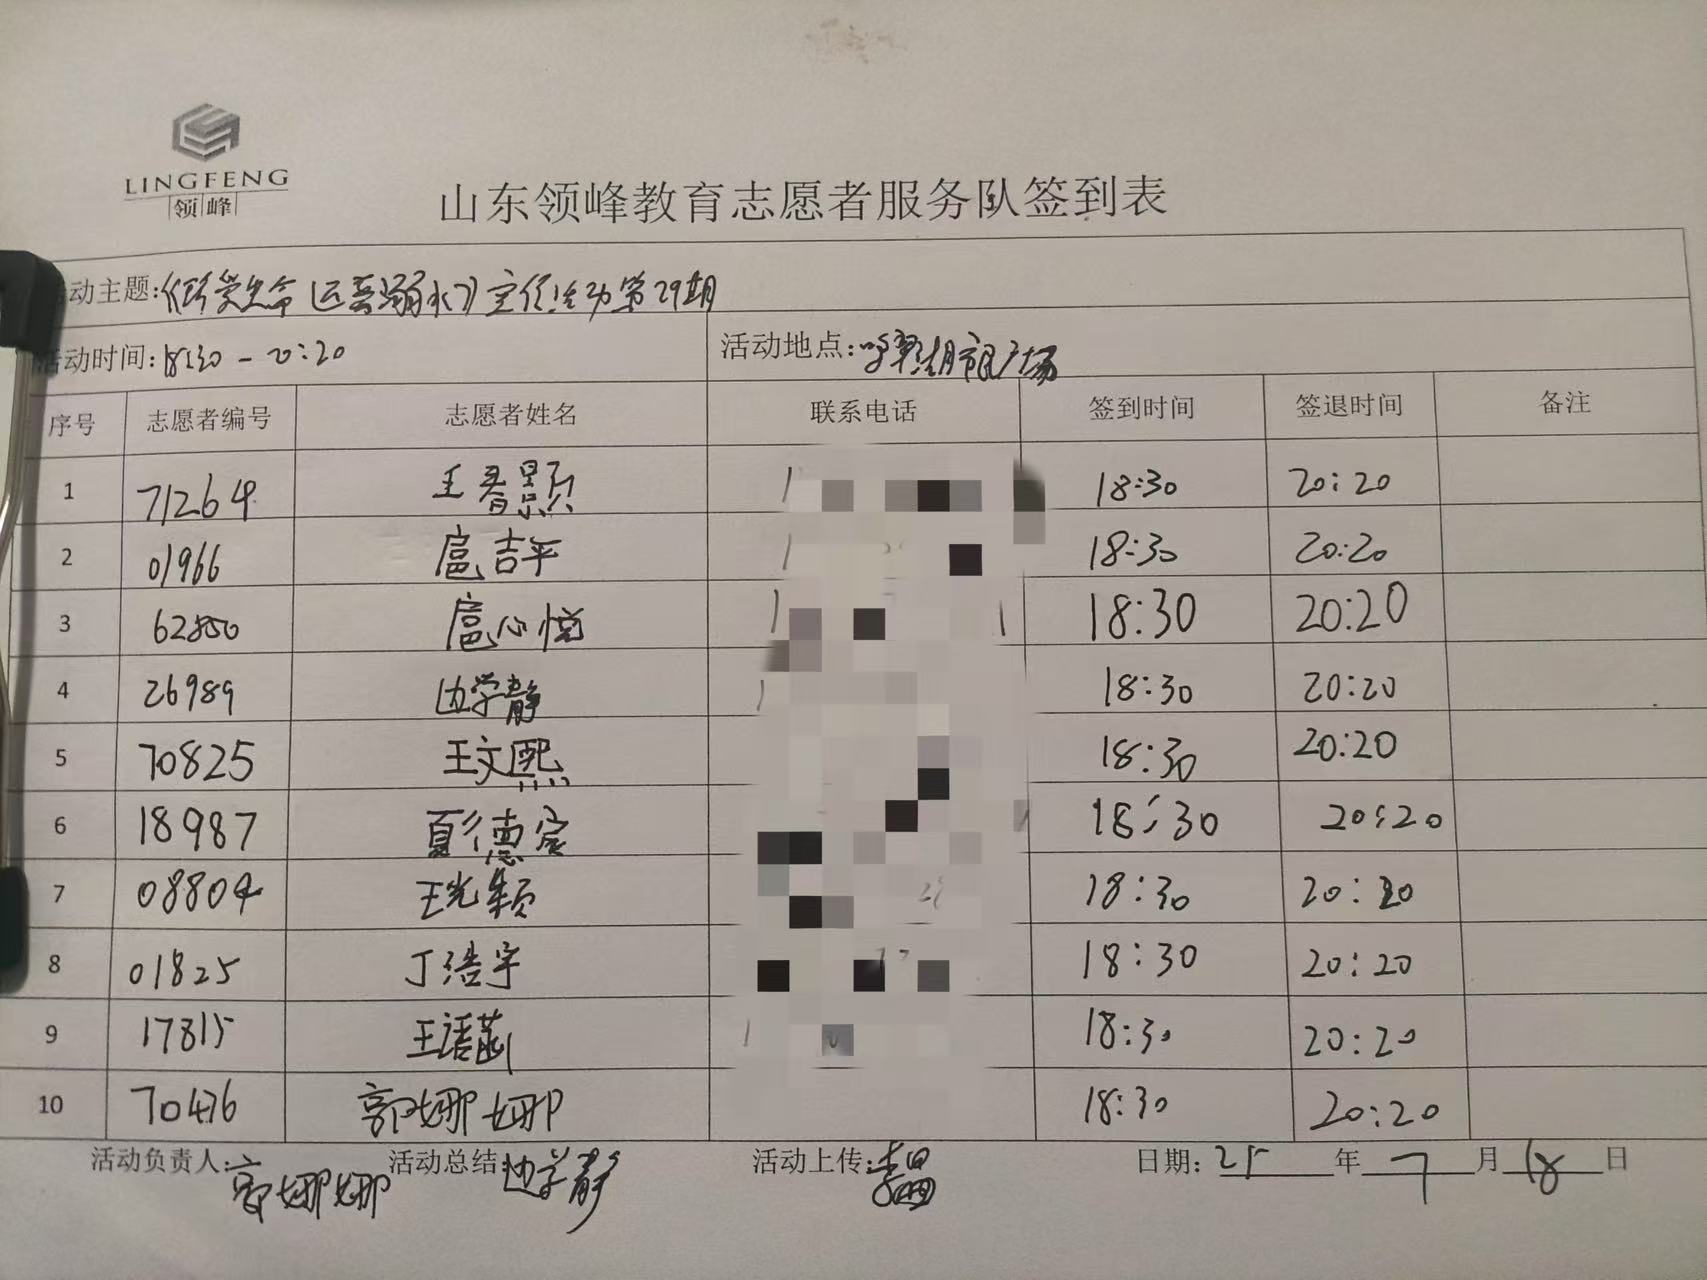 LINGFENG
领峰
山东领峰教育志愿者服务队签到表
动主题:《珍爱生命 远离溺水》宣传活动第29期
活动时间:18:30-20:20 活动地点:市民广场
序号 志愿者编号 志愿者姓名 联系电话 签到时间 签退时间 备注
1 71264 王春颢 18:30 20:20
2 01966 扈吉平 18:30 20:20
3 62850 扈心悦 18:30 20:20
4 26989 边学静 18:30 20:20
5 70825 王文熙 18:30 20:20
6 18987 夏德宸 18:30 20:20
7 08804 王光颖 18:30 20:20
8 01825 丁浩宇 18:30 20:20
9 17815 王语菡 18:30 20:20
10 70476 郭娜娜 18:30 20:20
活动负责人:郭娜娜 活动总结:边学静 活动上传: 日期:25年7月18日